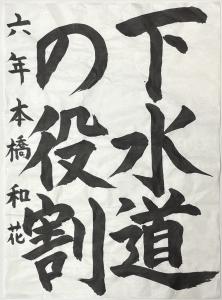 下水道
の役割
六年本橋和花